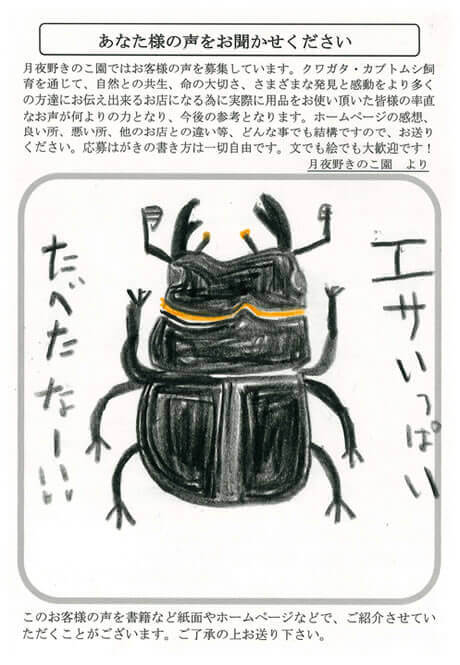 あなた様の声をお聞かせください
月夜野きのこ園ではお客様の声を募集しています。クワガタ・カブトムシ飼
育を通じて、自然との共生、命の大切さ、さまざまな発見と感動をより多く
の方達にお伝え出来るお店になる為に実際に用品をお使い頂いた皆様の率直
なお声が何よりの力となり、今後の参考となります。ホームページの感想、
良い所、悪い所、他のお店との違い等、どんな事でも結構ですので、お送り
ください。応募はがきの書き方は一切自由です。文でも絵でも大歓迎です！
月夜野きのこ園　より
エサいっぱい
たべたなー!!
このお客様の声を書籍など紙面やホームページなどで、ご紹介させてい
ただくことがございます。ご了承の上お送り下さい。